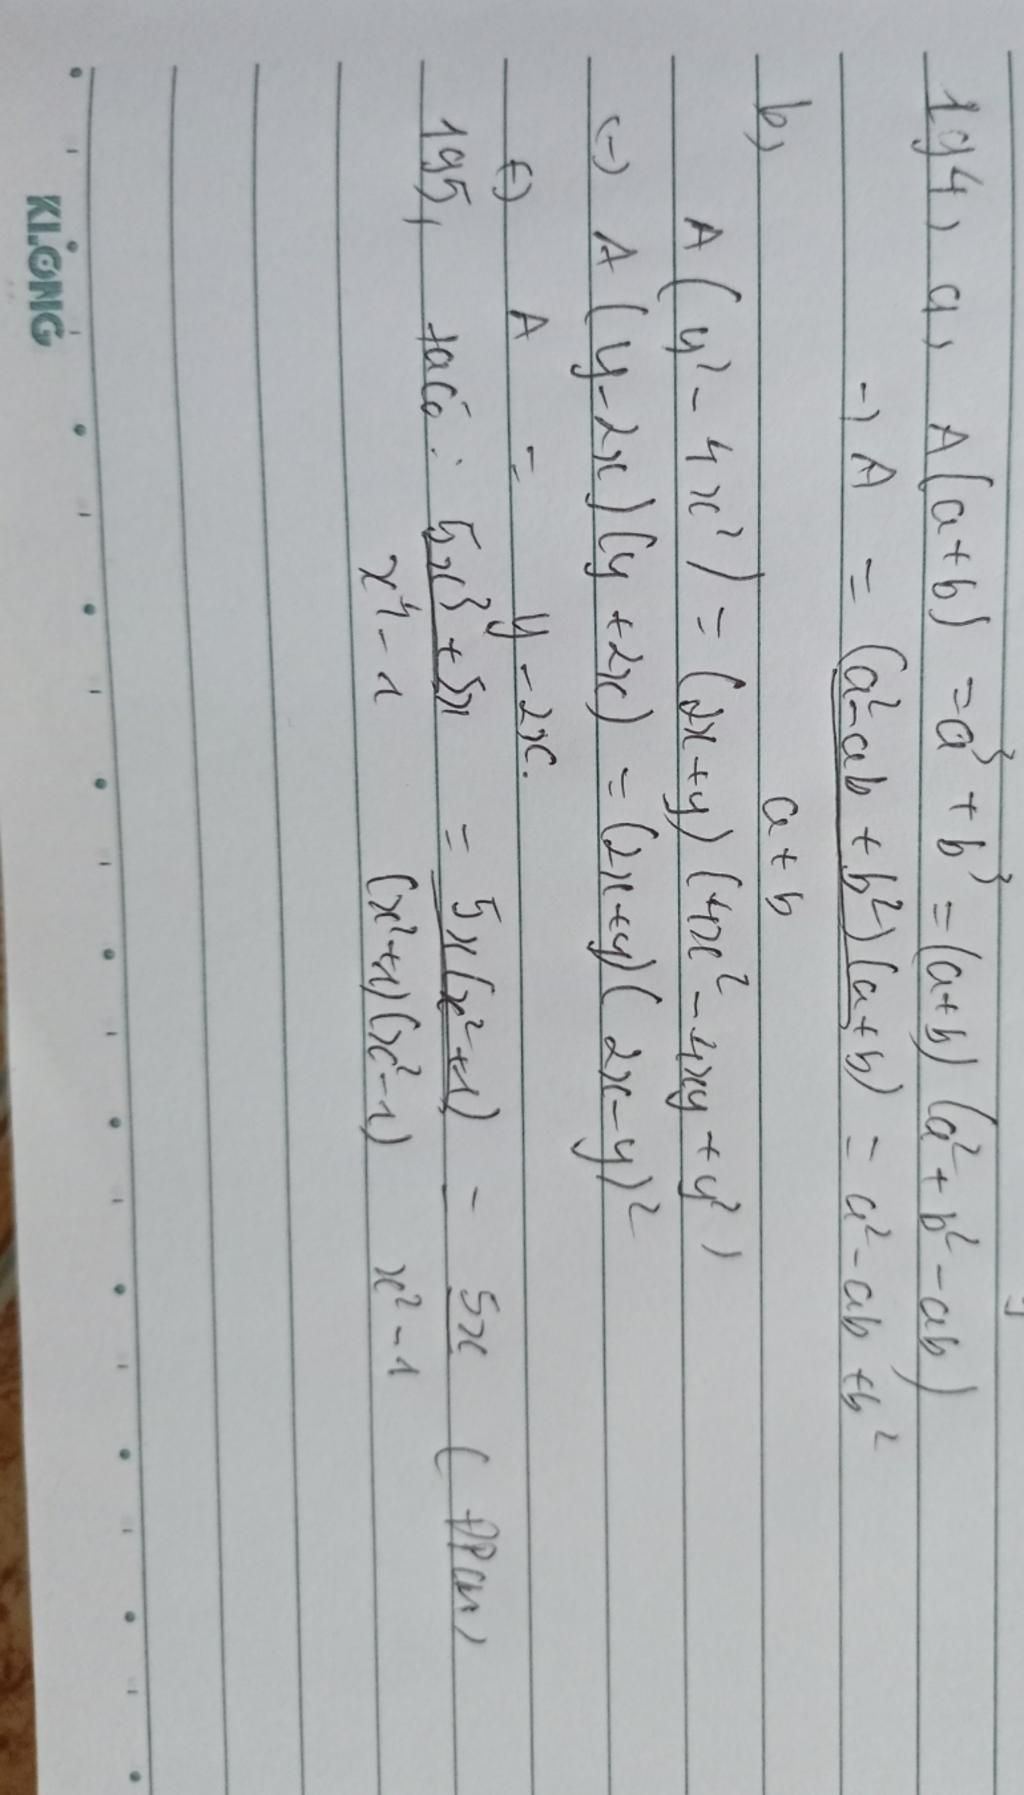 194, a, A(a+b) = a³ + b³ = (a+b) (a² + b² - ab)
→ A = (a² - ab + b²)(a+b) = a² - ab + b²
a + b
b,
A (y² - 4x²) = (2x+y) (4x² - 4xy + y²)
(-) A (y - 2x)(y + 2x) = (2x+y)(2x-y)²
A = y - 2x.
195, ta có: 5x³ + 5x = 5x(x²+1) = 5x (đpcm)
x⁴ - 1 (x²+1)(x²-1) x² - 1
KLONG